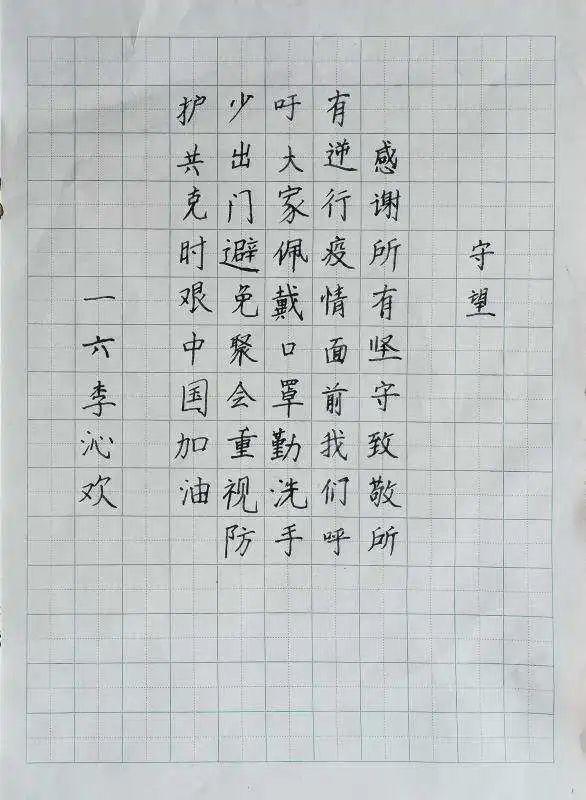 守望
感谢所有坚守致敬所
有逆行疫情面前我们呼
吁大家佩戴口罩勤洗手
少出门避免聚会重视防
护共克时艰中国加油
一六李沁欢